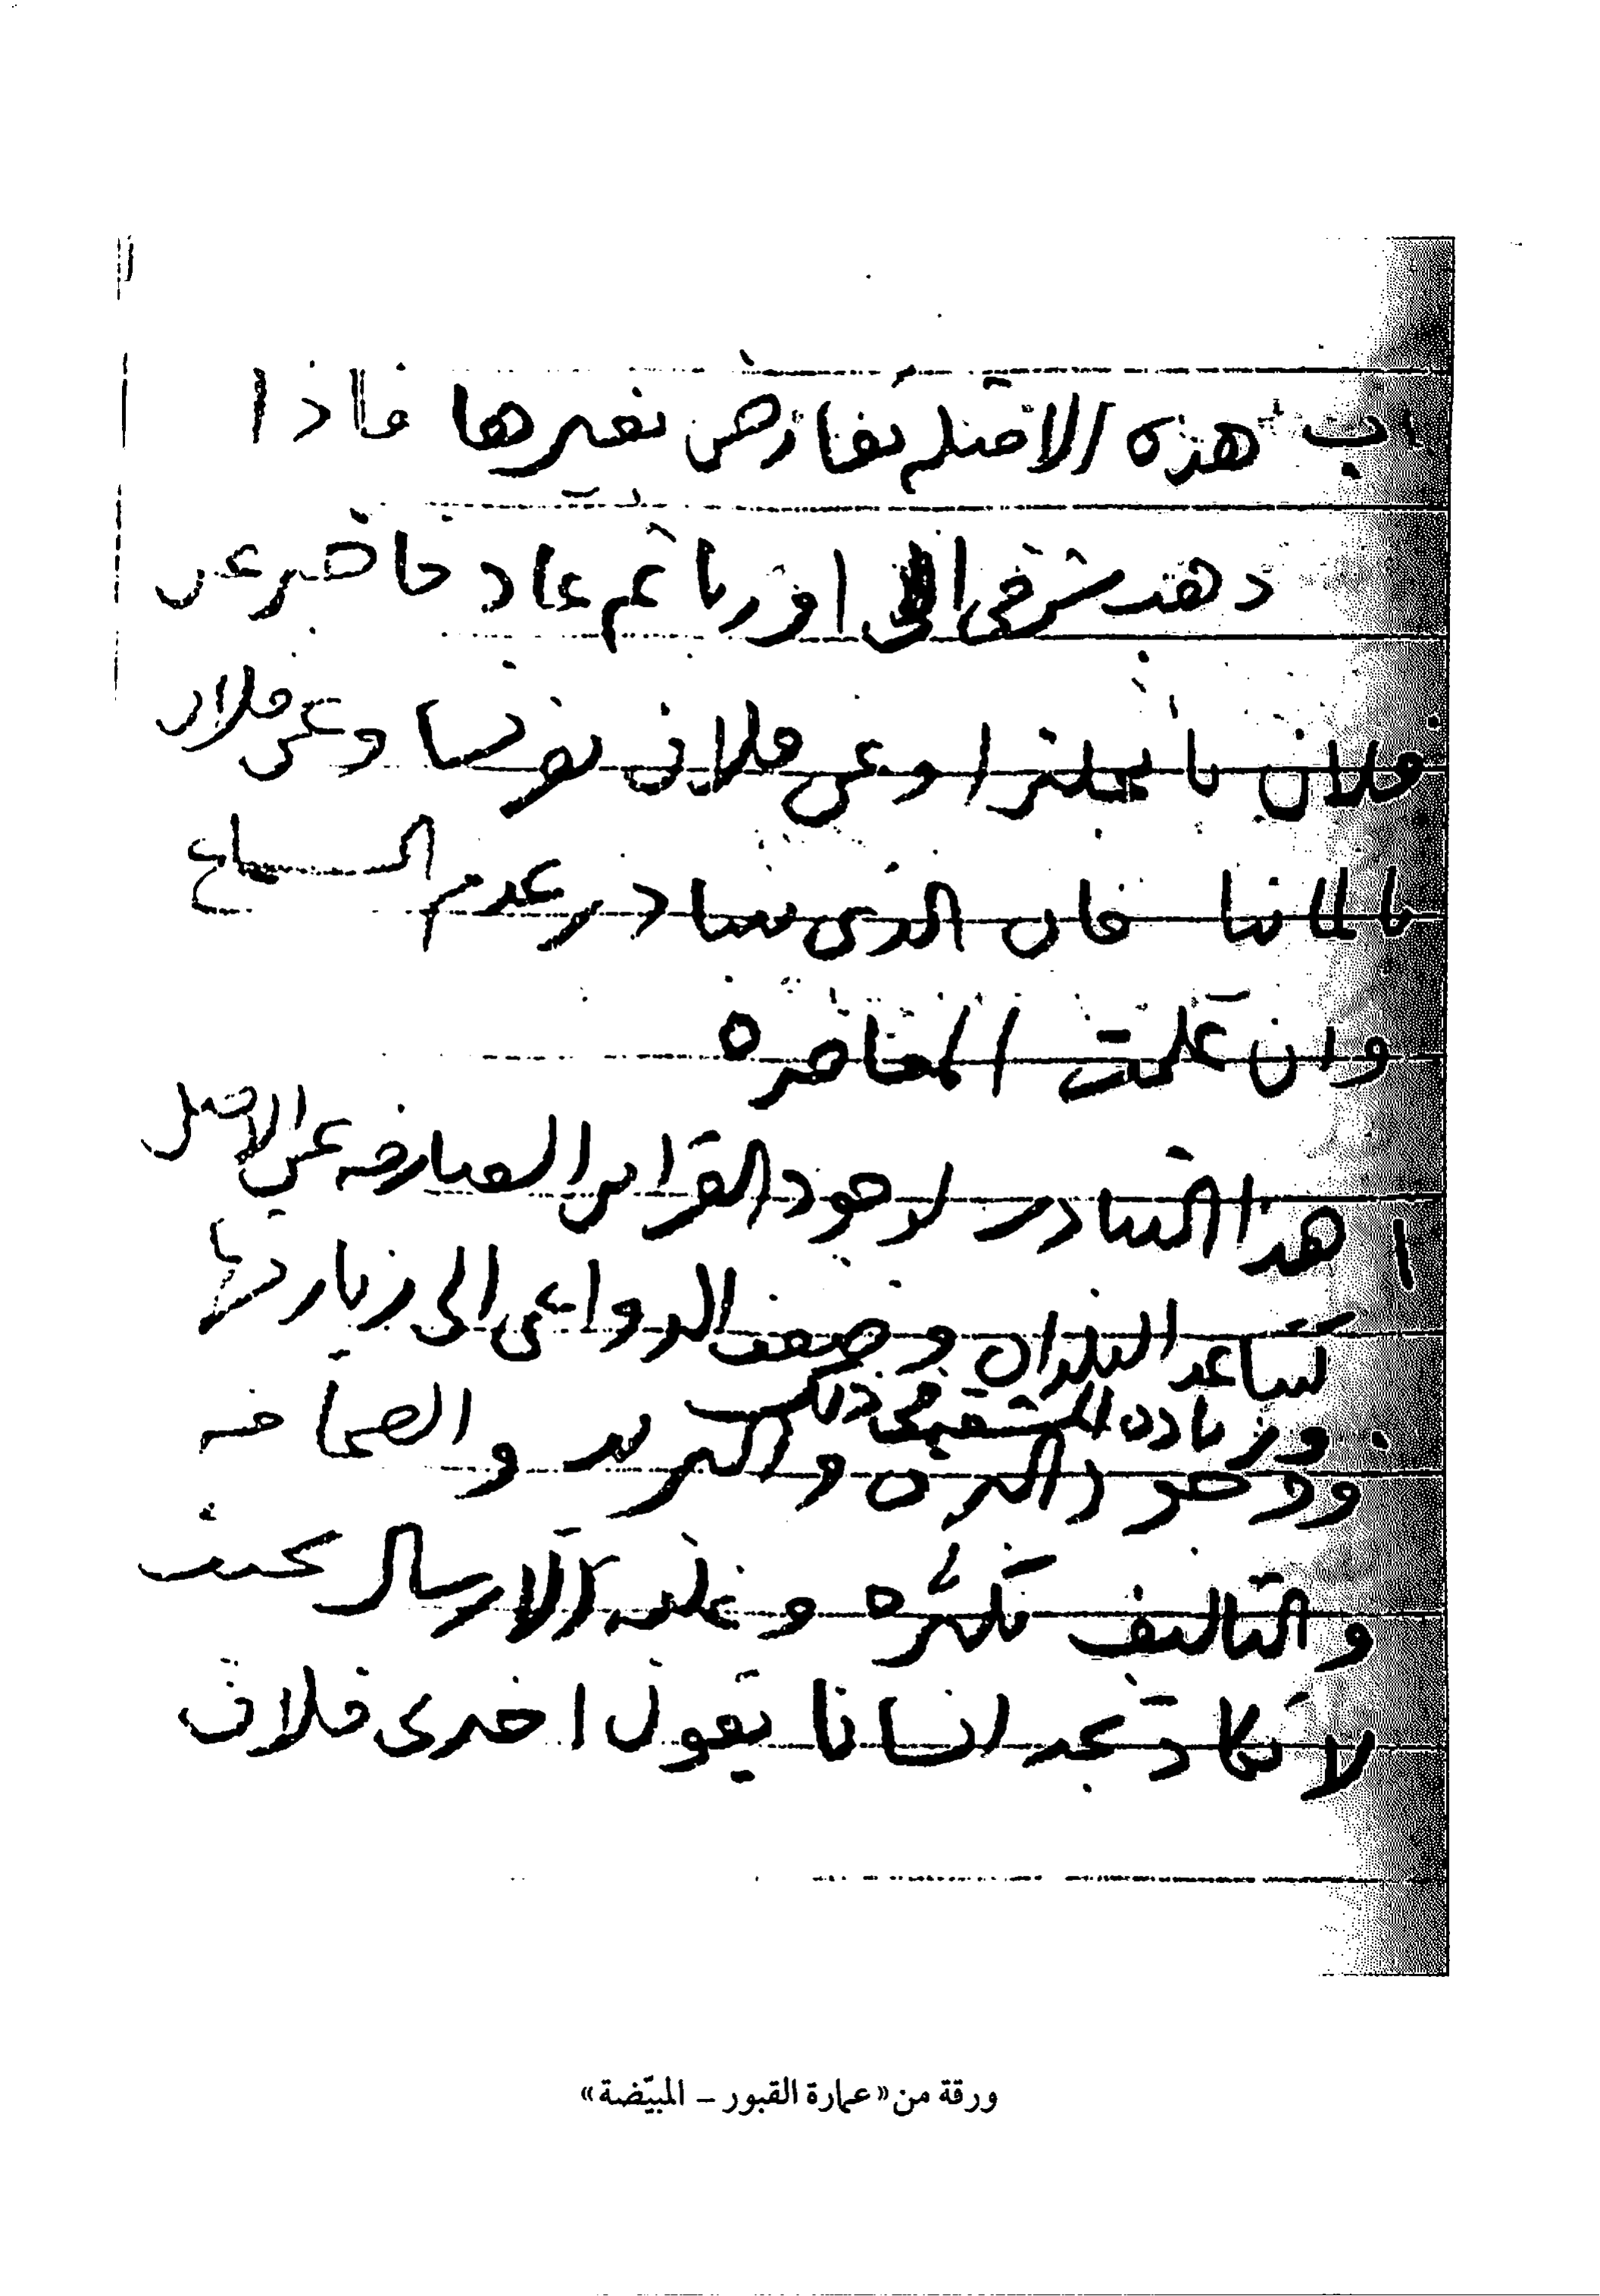 هذه الامثلة تعارض بغيرها فاذا
ذهب شرقي الى اوربا ثم عاد فاخبر عن
فلان بانجلترا وعن فلان بفرنسا وعن فلان
بالمانيا فان الذي يتبادر عدم السماع
وان علمت المعاصره
هذا التبادر لوجود القرائن الصارفه عن الاصل
كتباعد البلدان وضعف الدواعي الى زيارتها
وزياده المشقه في ذلك
ووجود البرق والبريد والصحافه
والتاليف بكثره وغلبه الارسال بحيث
لا تكاد تجد انسانا يقول اخبرني فلان
ورقة من «عمارة القبور – المبيّضة»